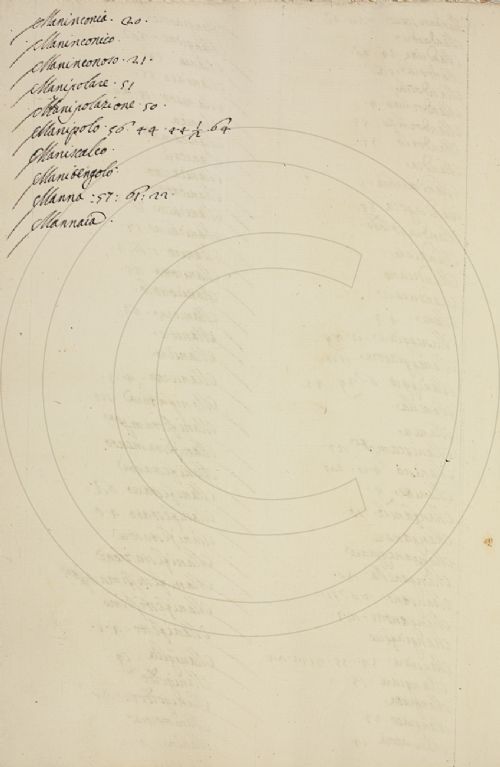 Maninconia. 20.
Maninconico.
Maninconoso. 21.
Manipolare. 51
Manipolazione 50.
Manipolo. 56. 44. 44 1/2 64
Maniscalco.
Manovengolo.
Manna : 57: 61: 22.
Mannaia.